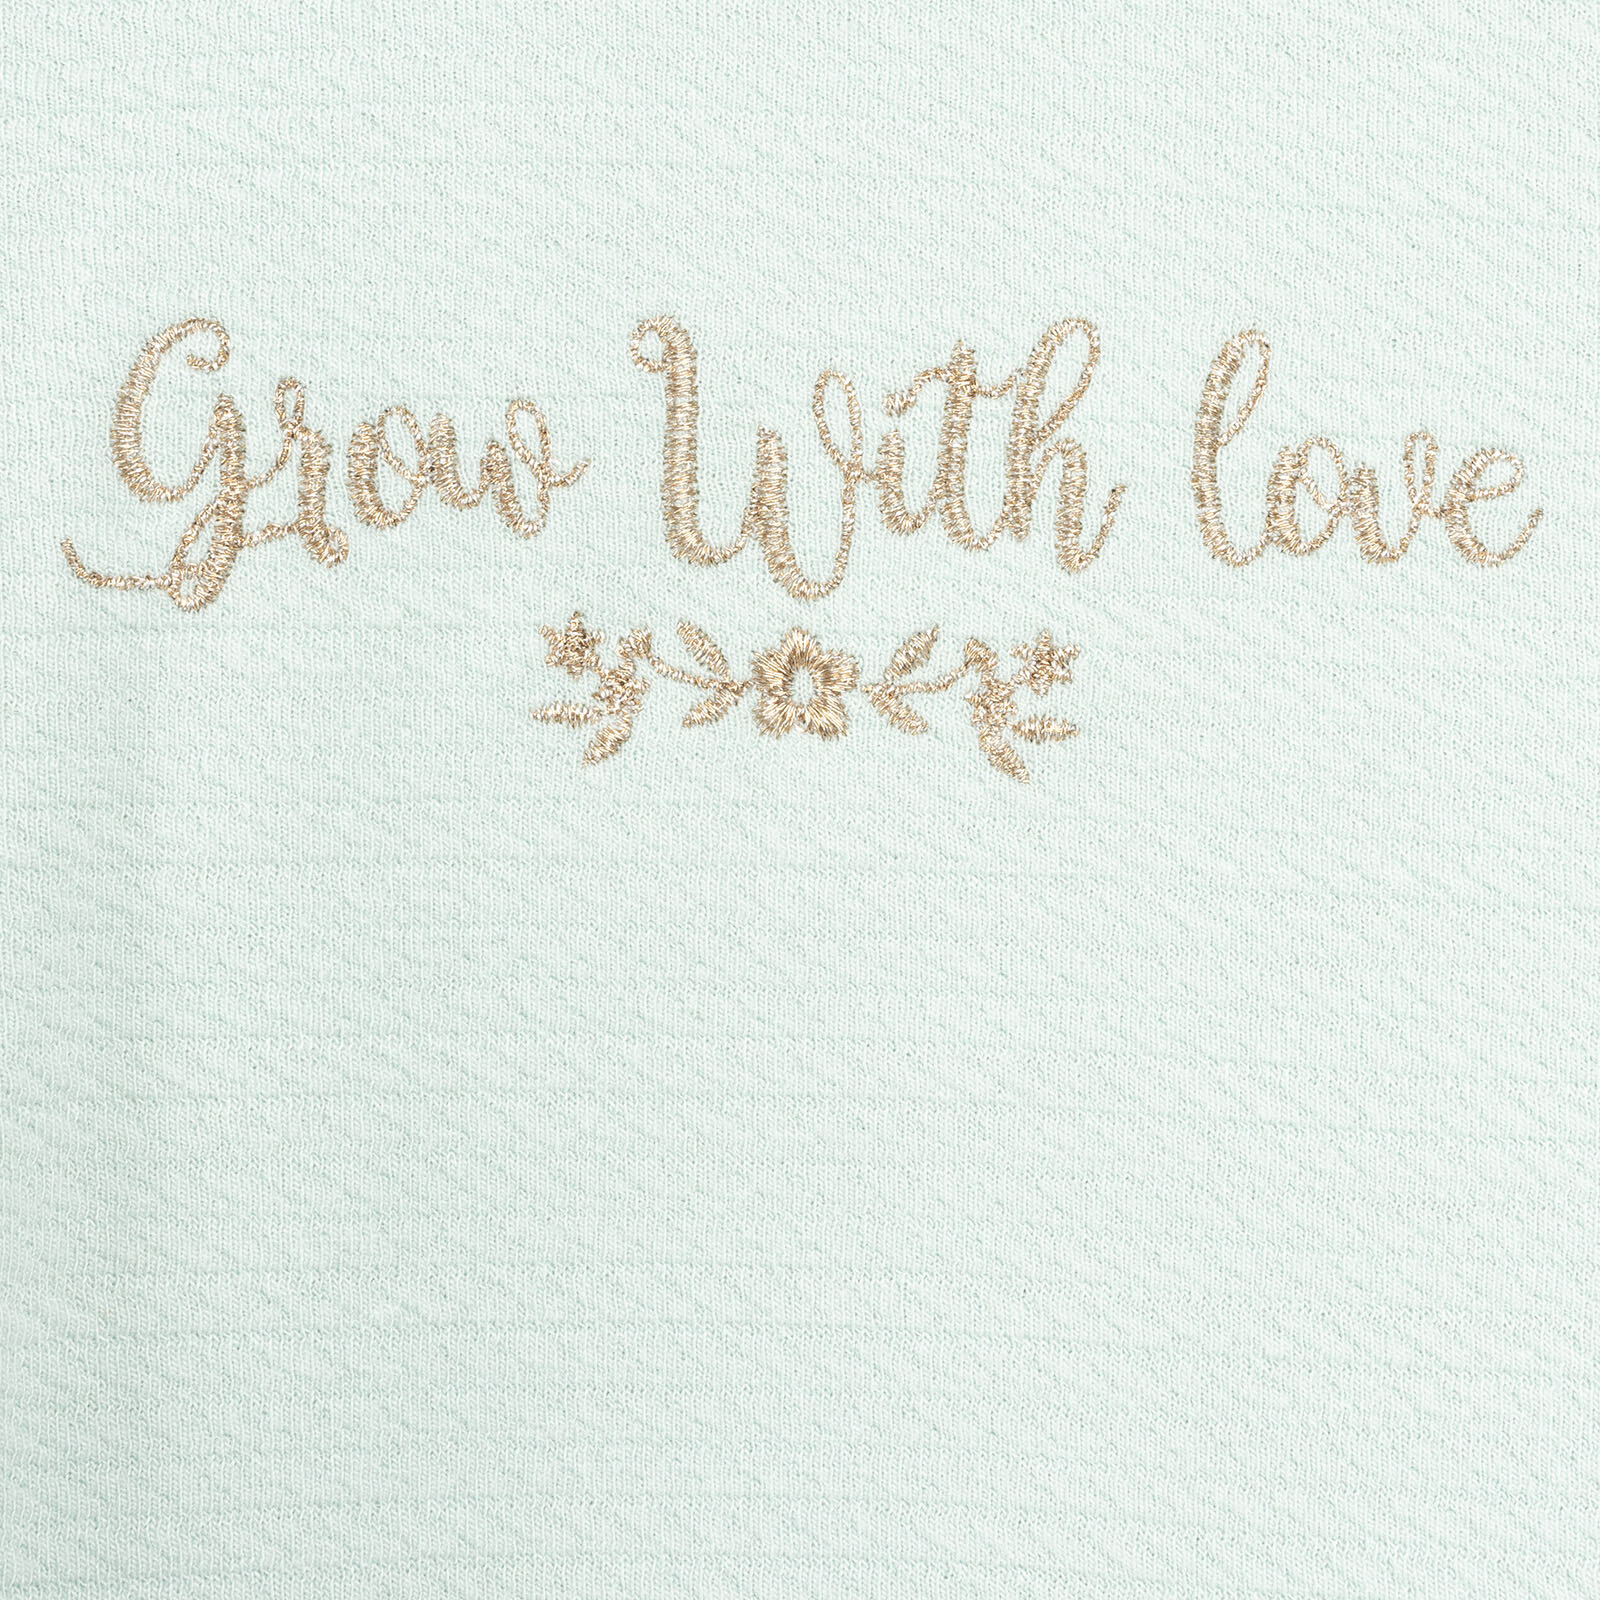 Grow With love